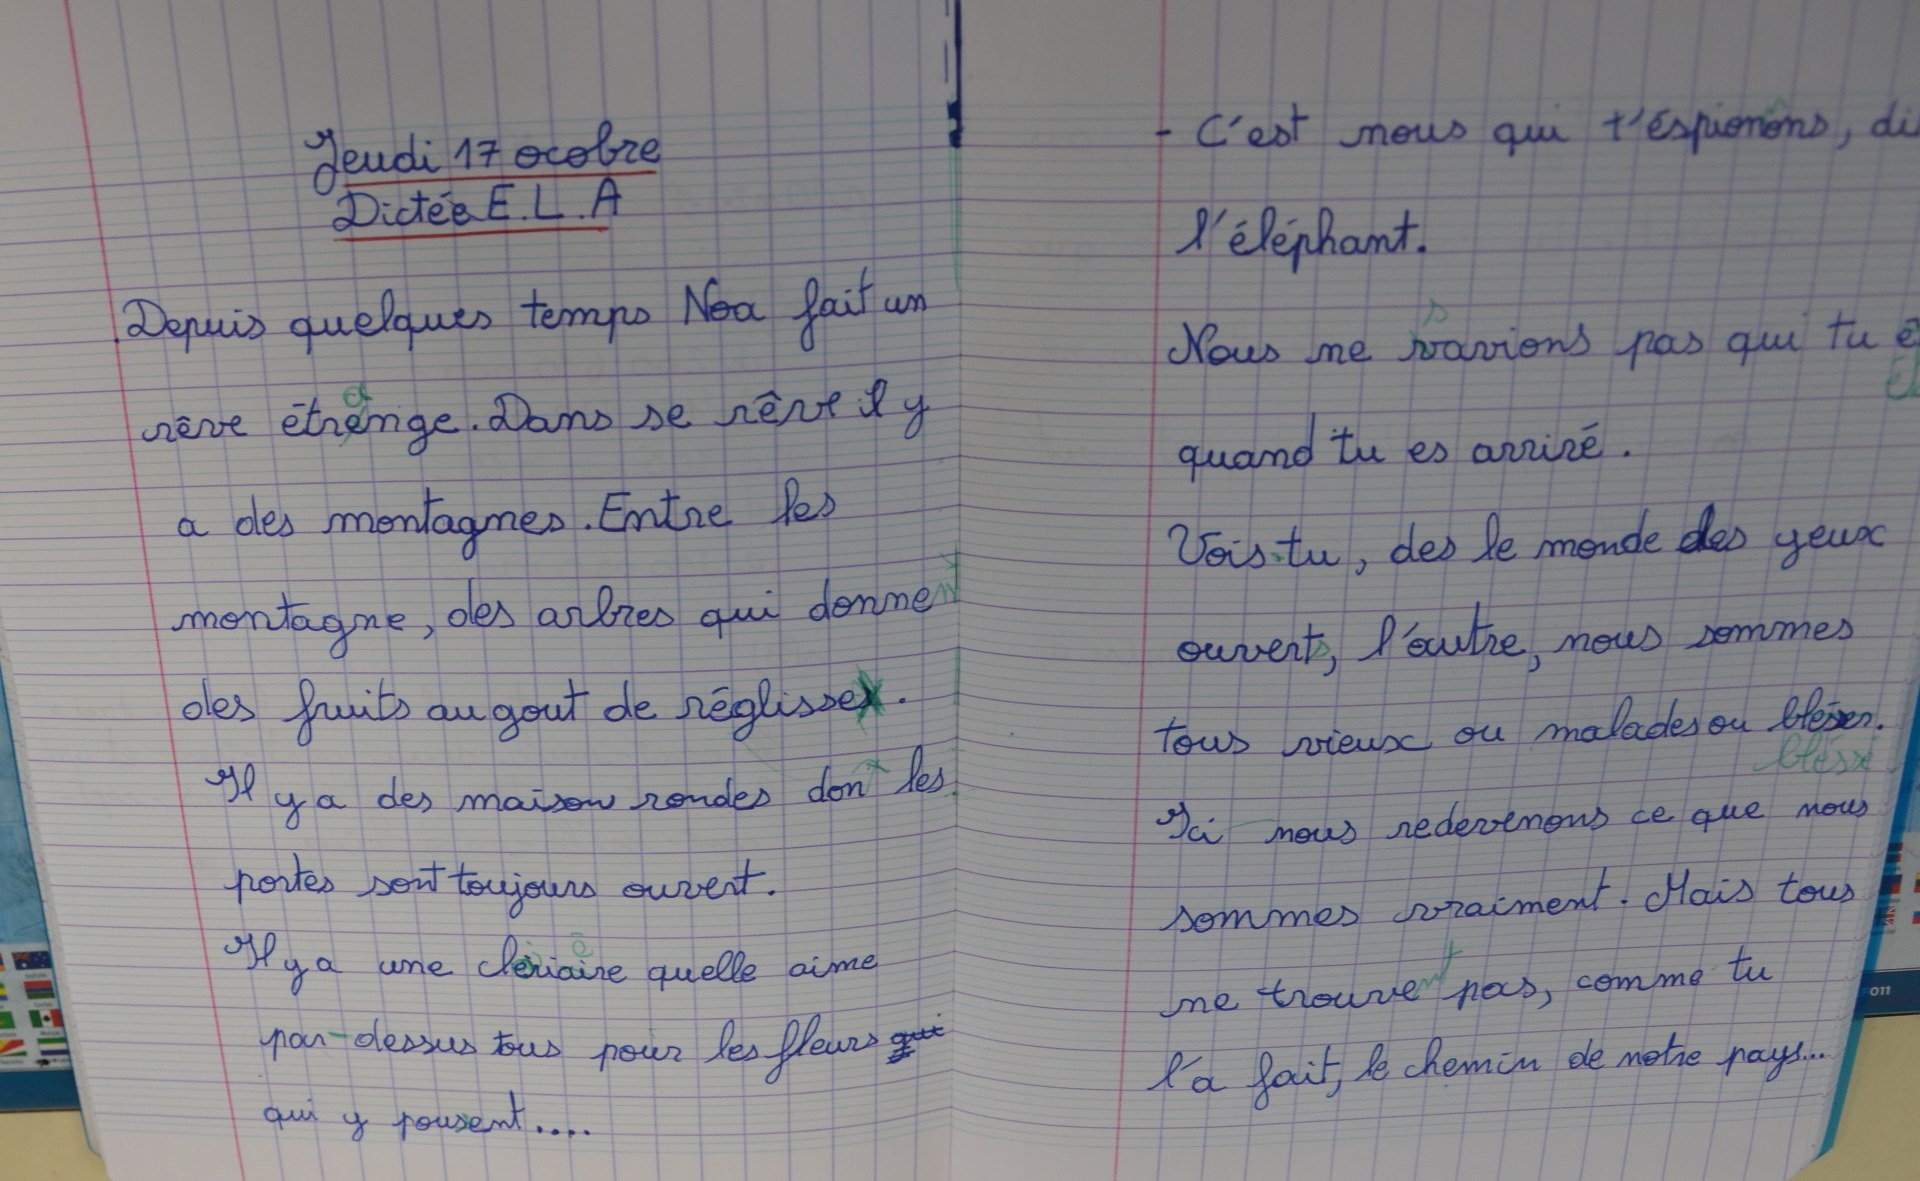 Jeudi 17 ocobre
Dictée E.L.A
Depuis quelques temps Noa fait un
rêve étrange. Dans se rêve il y
a des montagnes. Entre les
montagne, des arbres qui donnent
des fruits au gout de réglisse.
Il y a des maison rondes dont les
portes sont toujours ouvert.
Il y a une quelle aime
par-dessus tous pour les fleurs
qui y pousent....
- C'est nous qui t'espionons, di
l'éléphant.
Nous ne savions pas qui tu ê
quand tu es arrivé.
Vois-tu, des le monde des yeux
ouverts, l'autre, nous sommes
tous vieux ou malades ou
Ici nous redevenons ce que nous
sommes vraiment. Mais tous
ne trouvent pas, comme tu
l'a fait, le chemin de notre pays...
011